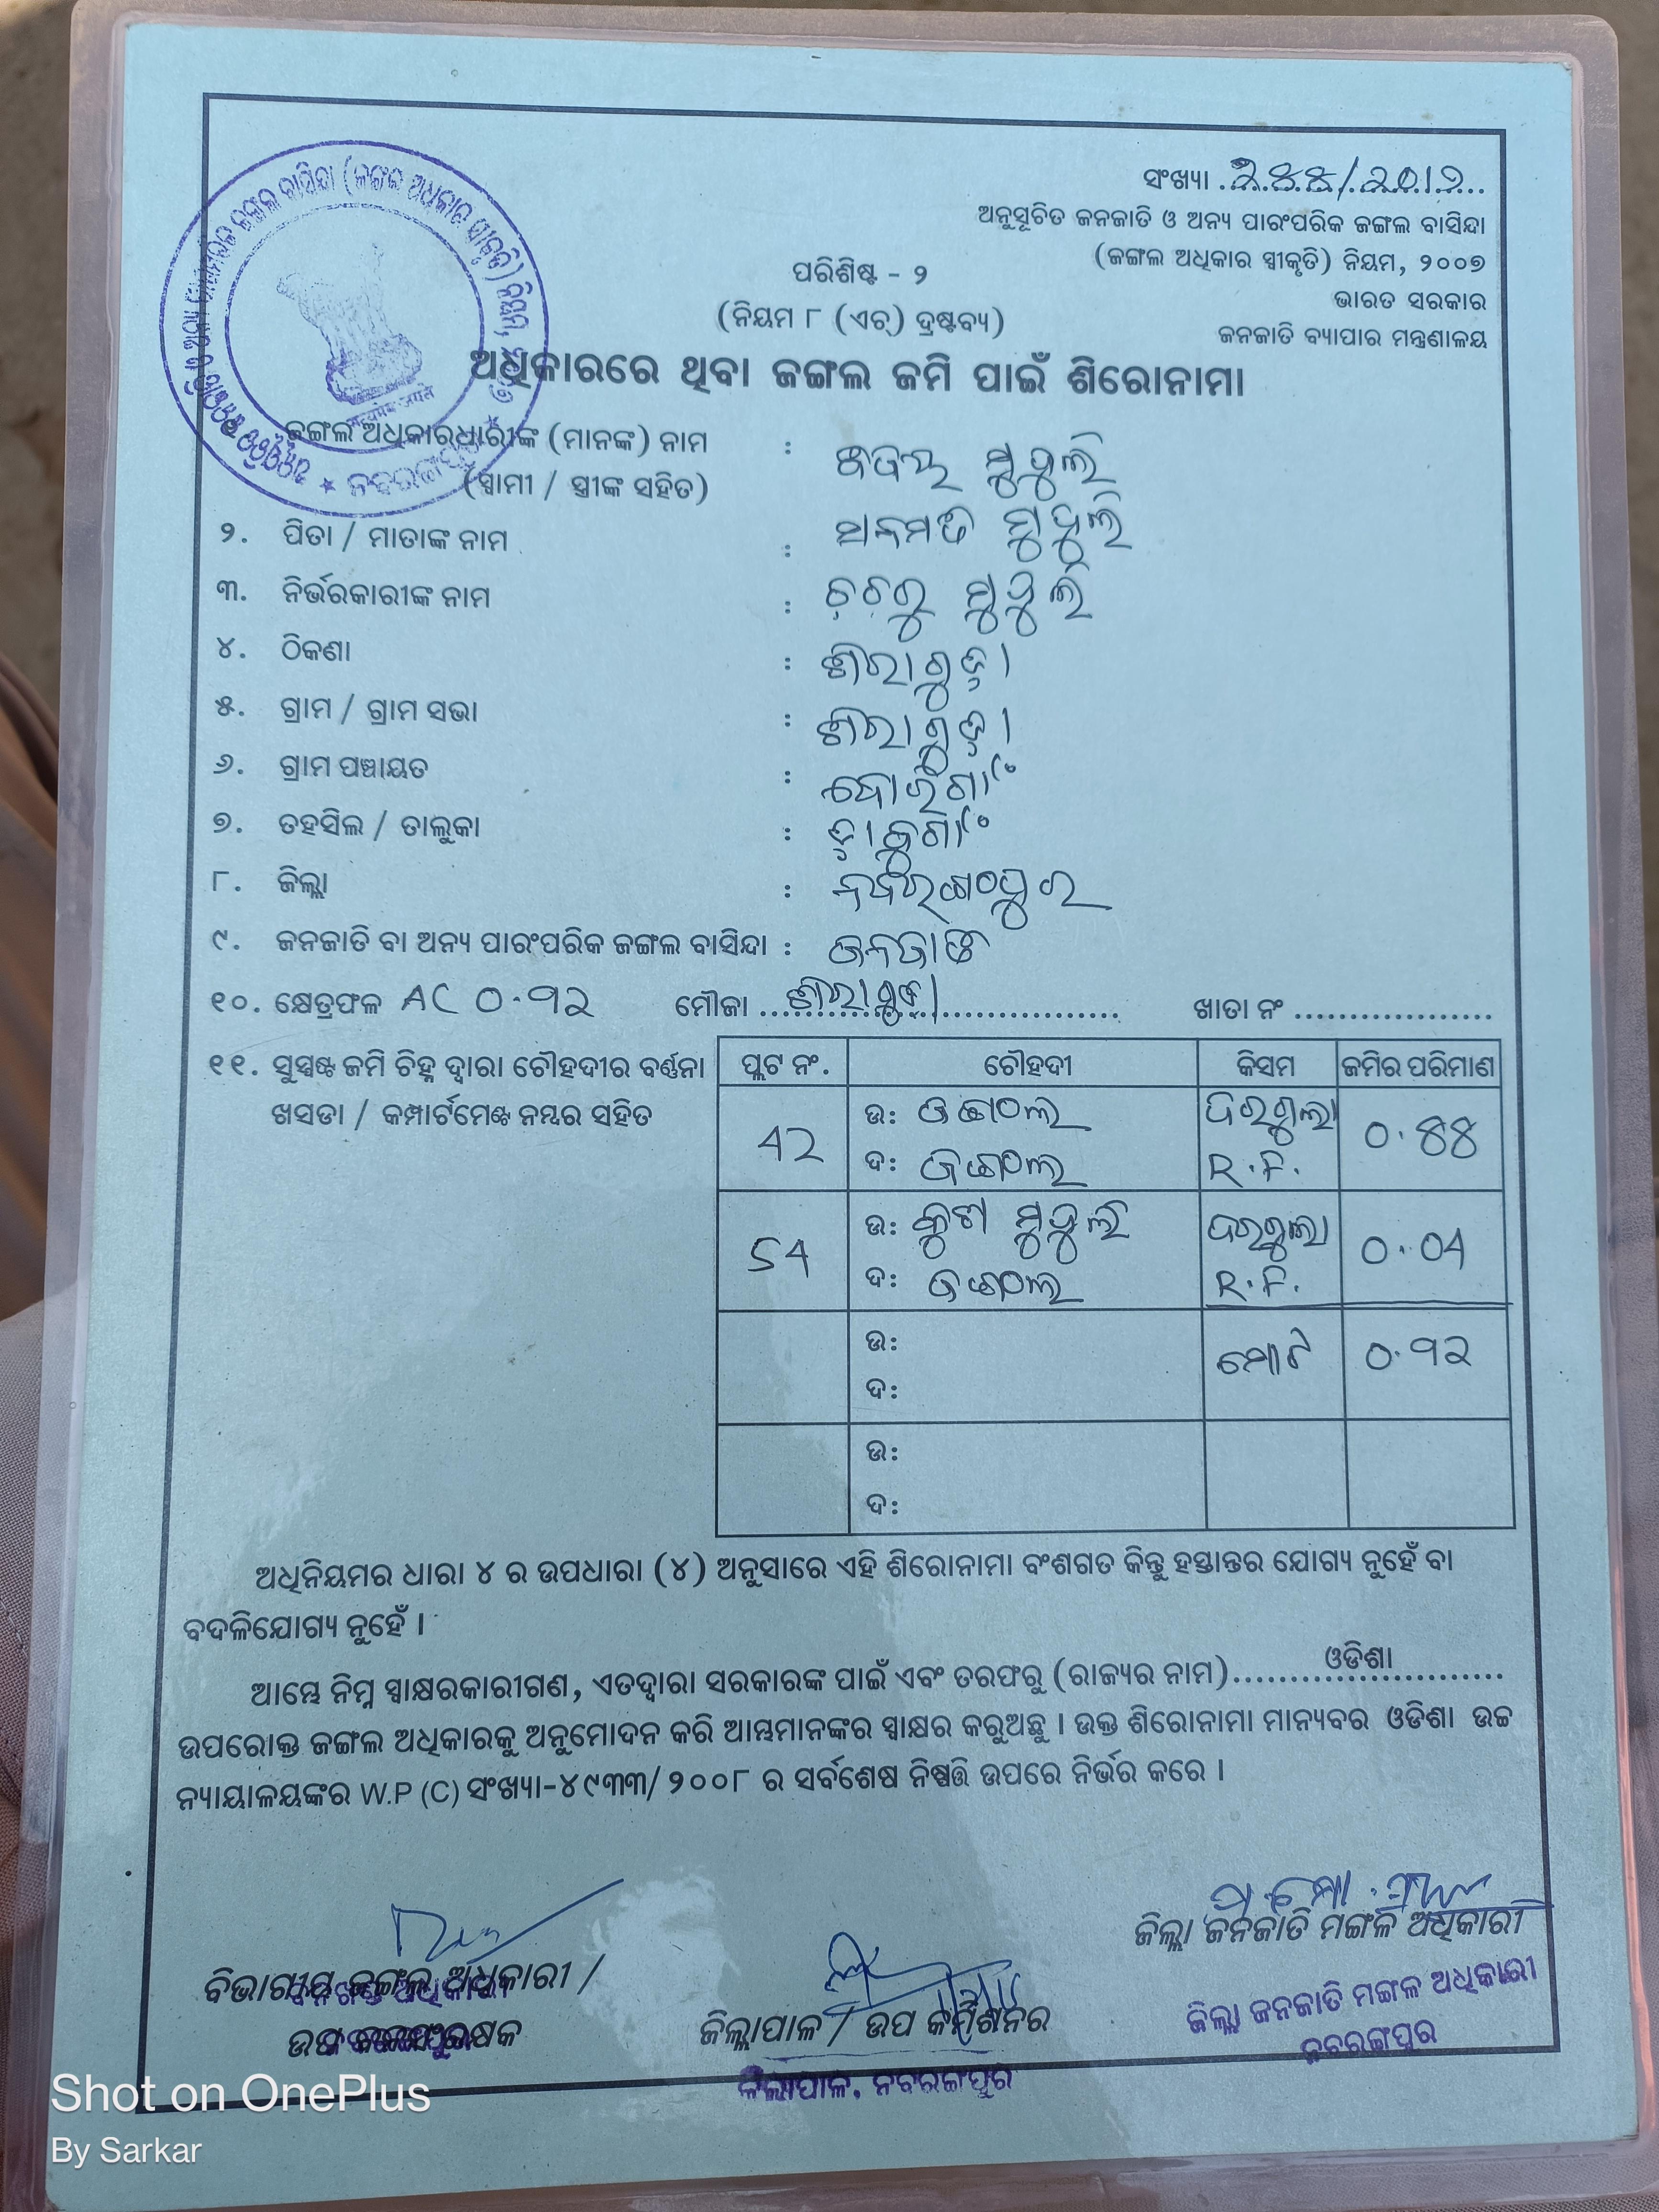 ସଂଖ୍ୟା
ଅନୁସୂଚିତ ଜନଜାତି ଓ ଅନ୍ୟ ପାରଂପରିକ ଜଙ୍ଗଲ ବାସିନ୍ଦା
(ଜଙ୍ଗଲ ଅଧିକାର ସ୍ୱୀକୃତି) ନିୟମ, ୨୦୦୭
ଭାରତ ସରକାର
ଜନଜାତି ବ୍ୟାପାର ମନ୍ତ୍ରଣାଳୟ
ପରିଶିଷ୍ଟ - ୨
(ନିୟମ ୮ (ଏଚ୍) ଦ୍ରଷ୍ଟବ୍ୟ)
ଅଧିକାରରେ ଥିବା ଜଙ୍ଗଲ ଜମି ପାଇଁ ଶିରୋନାମା
ଜଙ୍ଗଲ ଅଧିକାରଧାରୀଙ୍କ (ମାନଙ୍କ) ନାମ :
(ସ୍ୱାମୀ / ସ୍ତ୍ରୀଙ୍କ ସହିତ) ମୁଦୁଲି
୨. ପିତା / ମାତାଙ୍କ ନାମ : ମୁଦୁଲି
୩. ନିର୍ଭରକାରୀଙ୍କ ନାମ : ମୁଦୁଲି
୪. ଠିକଣା :
୫. ଗ୍ରାମ / ଗ୍ରାମ ସଭା :
୬. ଗ୍ରାମ ପଞ୍ଚାୟତ :
୭. ତହସିଲ / ତାଲୁକା : ଡ଼ାବୁଗାଁ
୮. ଜିଲ୍ଲା : ନବରଙ୍ଗପୁର
୯. ଜନଜାତି ବା ଅନ୍ୟ ପାରଂପରିକ ଜଙ୍ଗଲ ବାସିନ୍ଦା : ଜନଜାତି
୧୦. କ୍ଷେତ୍ରଫଳ AC ୦.୯୨ ମୌଜା ଖାତା ନଂ
୧୧. ସୁସ୍ପଷ୍ଟ ଜମି ଚିହ୍ନ ଦ୍ୱାରା ଚୌହଦୀର ବର୍ଣ୍ଣନା
ଖସଡା / କମ୍ପାର୍ଟମେଣ୍ଟ ନମ୍ବର ସହିତ
ପ୍ଲଟ ନଂ. ଚୌହଦୀ କିସମ ଜମିର ପରିମାଣ
42 ଉ: ଜଙ୍ଗଲ
ଦ: ଜଙ୍ଗଲ R.F. ୦.୪୪
54 ଉ: ମୁଦୁଲି
ଦ: ଜଙ୍ଗଲ R.F. ୦.୦4
ଉ: ମୋଟ ୦.୯୨
ଦ:
ଉ:
ଦ:
ଅଧିନିୟମର ଧାରା ୪ ର ଉପଧାରା (୪) ଅନୁସାରେ ଏହି ଶିରୋନାମା ବଂଶଗତ କିନ୍ତୁ ହସ୍ତାନ୍ତର ଯୋଗ୍ୟ ନୁହେଁ ବା
ବଦଳିଯୋଗ୍ୟ ନୁହେଁ ।
ଆମ୍ଭେ ନିମ୍ନ ସ୍ୱାକ୍ଷରକାରୀଗଣ, ଏତଦ୍ୱାରା ସରକାରଙ୍କ ପାଇଁ ଏବଂ ତରଫରୁ (ରାଜ୍ୟର ନାମ) ଓଡିଶା
ଉପରୋକ୍ତ ଜଙ୍ଗଲ ଅଧିକାରକୁ ଅନୁମୋଦନ କରି ଆମ୍ଭମାନଙ୍କର ସ୍ୱାକ୍ଷର କରୁଅଛୁ । ଉକ୍ତ ଶିରୋନାମା ମାନ୍ୟବର ଓଡିଶା ଉଚ୍ଚ
ନ୍ୟାୟାଳୟଙ୍କର W.P (C) ସଂଖ୍ୟା-୪୯୩୩/୨୦୦୮ ର ସର୍ବଶେଷ ନିଷ୍ପତ୍ତି ଉପରେ ନିର୍ଭର କରେ ।
ବିଭାଗୀୟ ଜଙ୍ଗଲ ଅଧିକାରୀ /
ଉପ ବନସଂରକ୍ଷକ
ଜିଲ୍ଲାପାଳ / ଉପ କମିଶନର
ଜିଲ୍ଲାପାଳ, ନବରଙ୍ଗପୁର
ଜିଲ୍ଲା ଜନଜାତି ମଙ୍ଗଳ ଅଧିକାରୀ
ଜିଲ୍ଲା ଜନଜାତି ମଙ୍ଗଳ ଅଧିକାରୀ
ନବରଙ୍ଗପୁର
Shot on OnePlus
By Sarkar